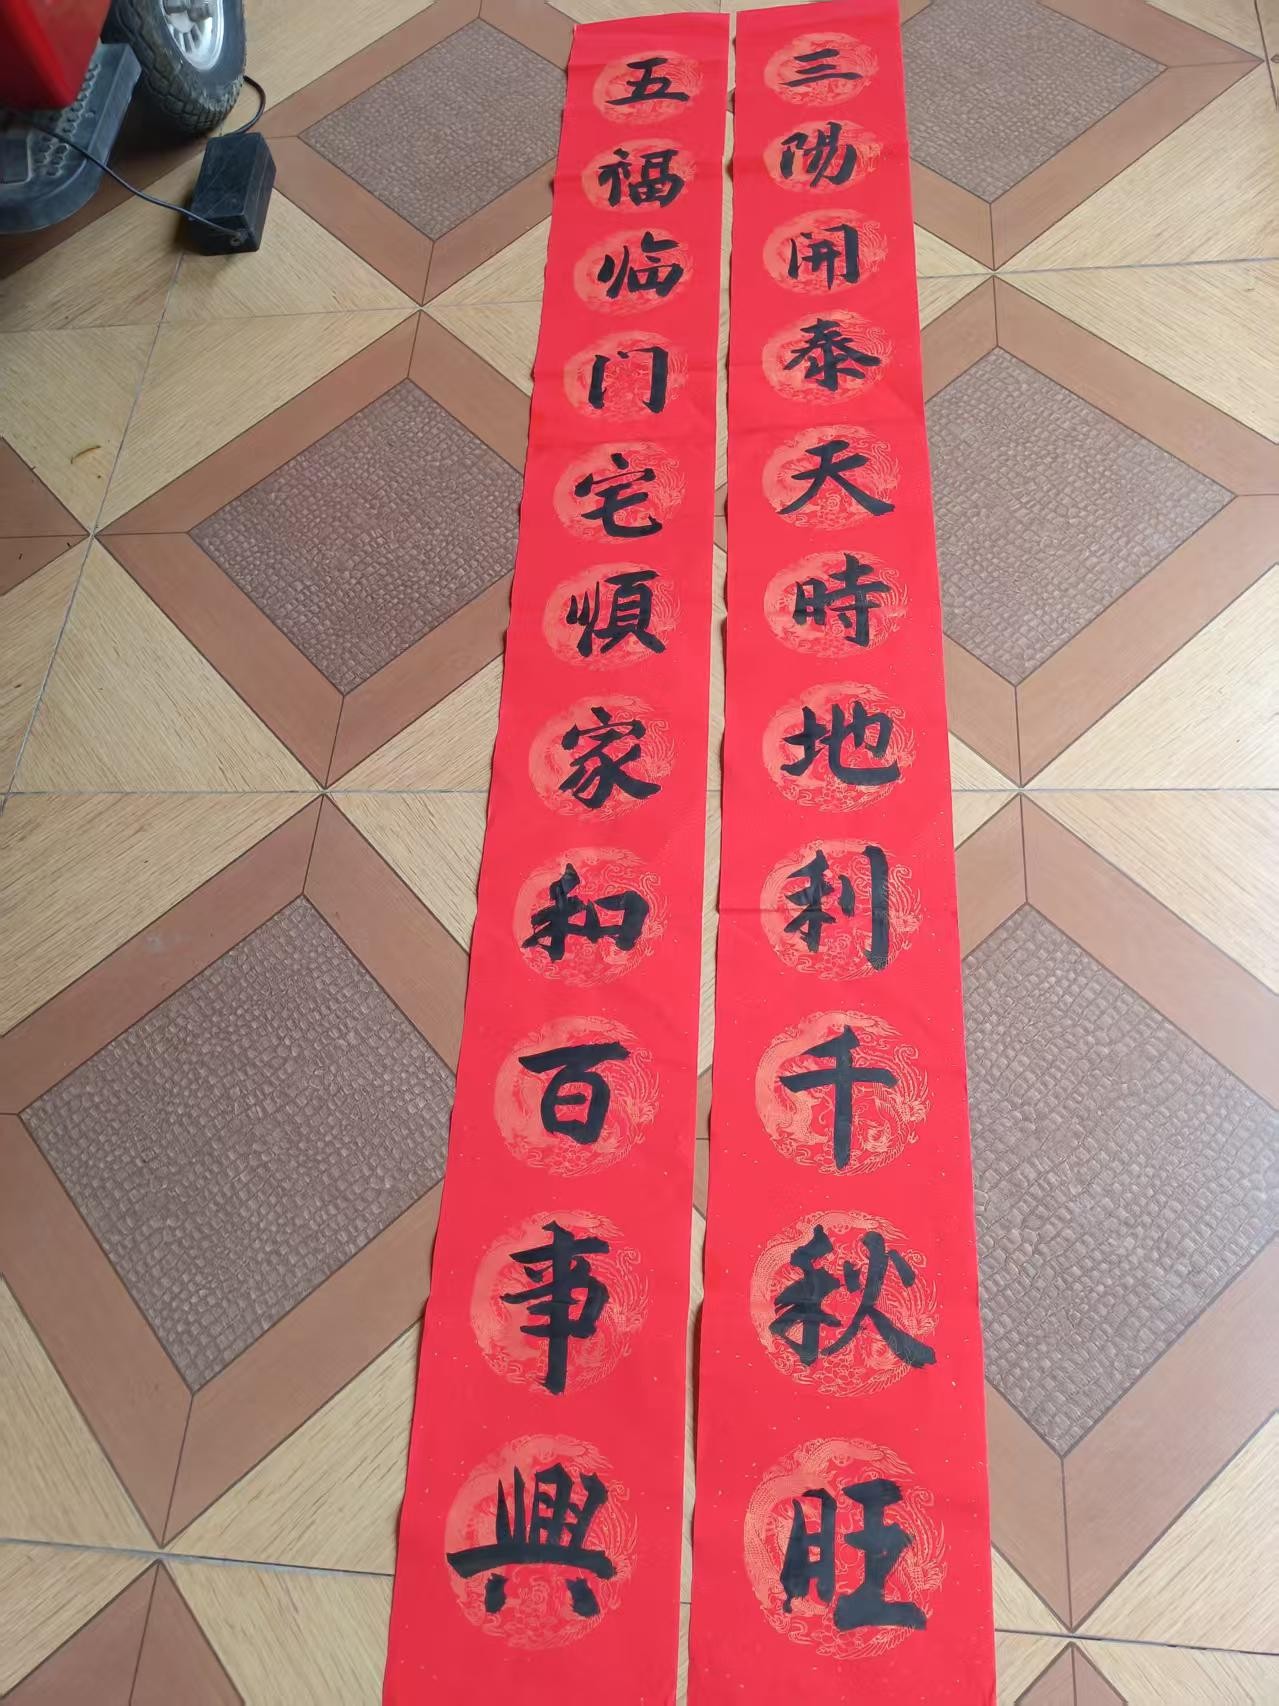 三陽開泰天時地利千秋旺
五福临门宅順家和百事興